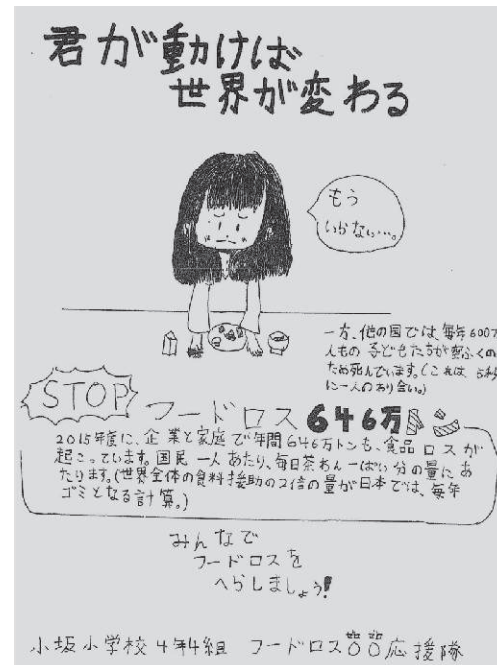 君が動けば
世界が変わる
もう
いらない…。
一方、他の国では、毎年600万
人もの子どもたちが栄ふくの
ため死んでいます。(これは、5秒
に一人のわり合い。)
STOP フードロス 646万トン
2015年度に、企業と家庭で年間646万トンも、食品ロスが
起こっています。国民一人あたり、毎日茶わん一ぱい分の量にあ
たります。(世界全体の食料援助の2倍の量が日本では、毎年
ゴミとなる計算。)
みんなで
フードロスを
へらしましょう!
小坂小学校4年4組 フードロス 応援隊